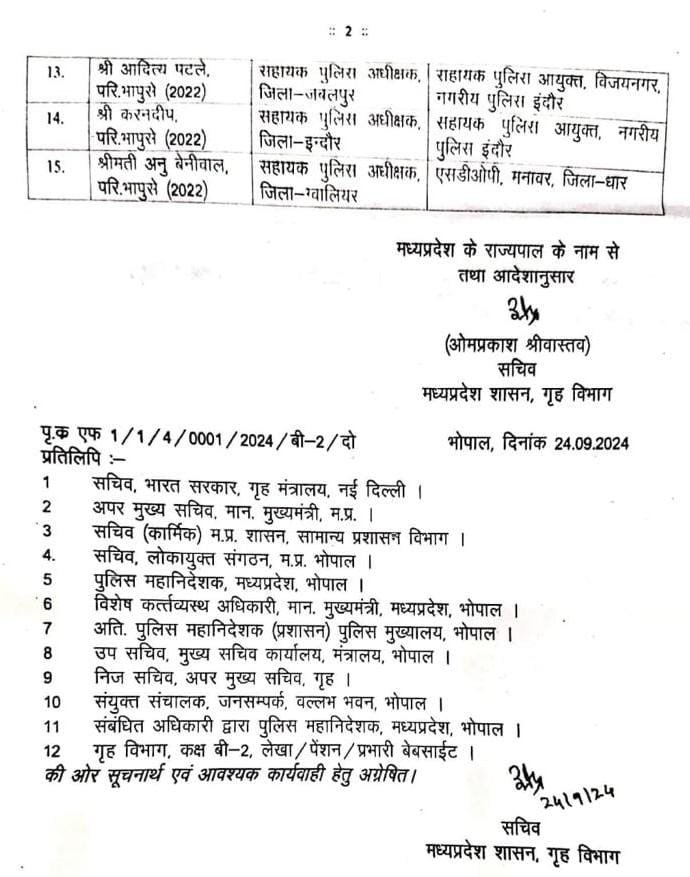 :: 2 ::
13. श्री आदित्य पटले, सहायक पुलिस अधीक्षक, सहायक पुलिस आयुक्त, विजयनगर,
परि.भापुसे (2022) जिला–जबलपुर नगरीय पुलिस इंदौर
14. श्री करनदीप, सहायक पुलिस अधीक्षक, सहायक पुलिस आयुक्त, नगरीय
परि.भापुसे (2022) जिला–इन्दौर पुलिस इंदौर
15. श्रीमती अनु बेनीवाल, सहायक पुलिस अधीक्षक, एसडीओपी, मनावर, जिला–धार
परि.भापुसे (2022) जिला–ग्वालियर
मध्यप्रदेश के राज्यपाल के नाम से
तथा आदेशानुसार
(ओमप्रकाश श्रीवास्तव)
सचिव
मध्यप्रदेश शासन, गृह विभाग
पृ.क एफ 1/1/4/0001/2024/बी–2/दो भोपाल, दिनांक 24.09.2024
प्रतिलिपि :–
1 सचिव, भारत सरकार, गृह मंत्रालय, नई दिल्ली ।
2 अपर मुख्य सचिव, मान. मुख्यमंत्री, म.प्र. ।
3 सचिव (कार्मिक) म.प्र. शासन, सामान्य प्रशासन विभाग ।
4. सचिव, लोकायुक्त संगठन, म.प्र. भोपाल ।
5 पुलिस महानिदेशक, मध्यप्रदेश, भोपाल ।
6 विशेष कर्त्तव्यस्थ अधिकारी, मान. मुख्यमंत्री, मध्यप्रदेश, भोपाल ।
7 अति. पुलिस महानिदेशक (प्रशासन) पुलिस मुख्यालय, भोपाल ।
8 उप सचिव, मुख्य सचिव कार्यालय, मंत्रालय, भोपाल ।
9 निज सचिव, अपर मुख्य सचिव, गृह ।
10 संयुक्त संचालक, जनसम्पर्क, वल्लभ भवन, भोपाल ।
11 संबंधित अधिकारी द्वारा पुलिस महानिदेशक, मध्यप्रदेश, भोपाल ।
12 गृह विभाग, कक्ष बी–2, लेखा/पेंशन/प्रभारी बेबसाईट ।
की ओर सूचनार्थ एवं आवश्यक कार्यवाही हेतु अग्रेषित।
24/9/24
सचिव
मध्यप्रदेश शासन, गृह विभाग